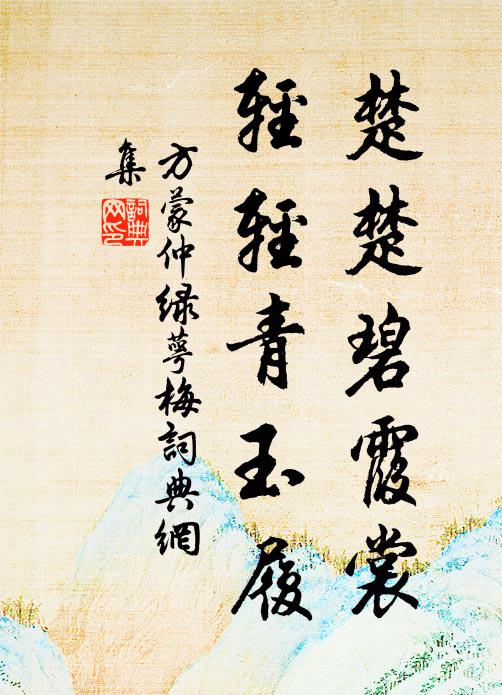 楚楚碧霞裳
輕輕青玉履
方蒙仲綠萼梅詞典網
集
詞典
网印